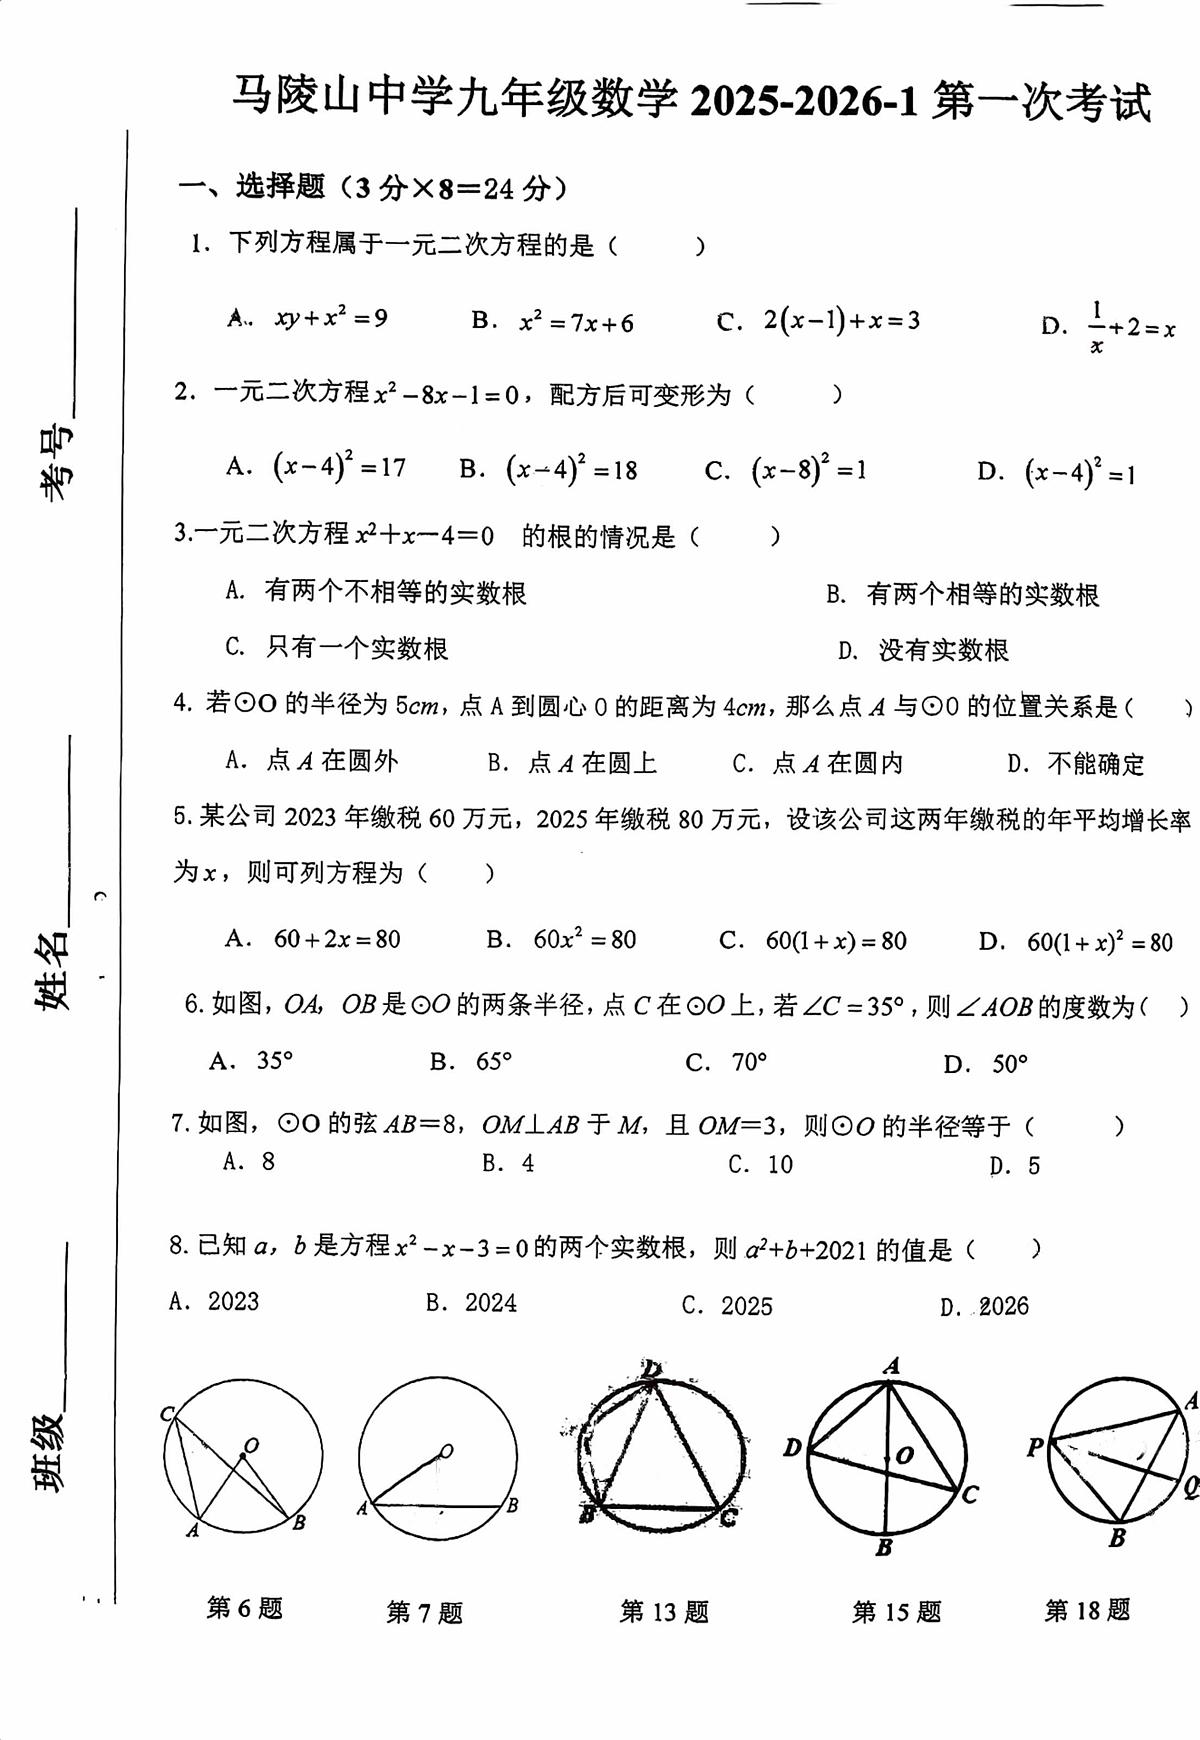 马陵山中学九年级数学 2025-2026-1 第一次考试
一、选择题（3 分×8＝24 分）
1．下列方程属于一元二次方程的是（　　）
A． xy+x²=9　B． x²=7x+6　C． 2(x−1)+x=3　D． 1/x+2=x
2．一元二次方程 x²−8x−1=0，配方后可变形为（　　）
A． (x−4)²=17　B． (x−4)²=18　C． (x−8)²=1　D． (x−4)²=1
3.一元二次方程 x²＋x－4＝0　的根的情况是（　　）
A． 有两个不相等的实数根　B． 有两个相等的实数根
C． 只有一个实数根　D． 没有实数根
4. 若⊙O 的半径为 5cm，点 A 到圆心 O 的距离为 4cm，那么点 A 与⊙O 的位置关系是（　　）
A．点 A 在圆外　B．点 A 在圆上　C．点 A 在圆内　D．不能确定
5.某公司 2023 年缴税 60 万元，2025 年缴税 80 万元，设该公司这两年缴税的年平均增长率
为 x，则可列方程为（　　）
A． 60+2x=80　B． 60x²=80　C． 60(1+x)=80　D． 60(1+x)²=80
6.如图，OA，OB 是⊙O 的两条半径，点 C 在⊙O 上，若∠C=35°，则∠AOB 的度数为（　　）
A． 35°　B． 65°　C． 70°　D． 50°
7.如图，⊙O 的弦 AB＝8，OM⊥AB 于 M，且 OM＝3，则⊙O 的半径等于（　　）
A．8　B．4　C．10　D．5
8.已知 a，b 是方程 x²−x−3=0 的两个实数根，则 a²+b+2021 的值是（　　）
A．2023　B．2024　C．2025　D．2026
C O A B
O A B
D B C
A D O C B
A P Q B
第 6 题　第 7 题　第 13 题　第 15 题　第 18 题
考号
姓名
班级